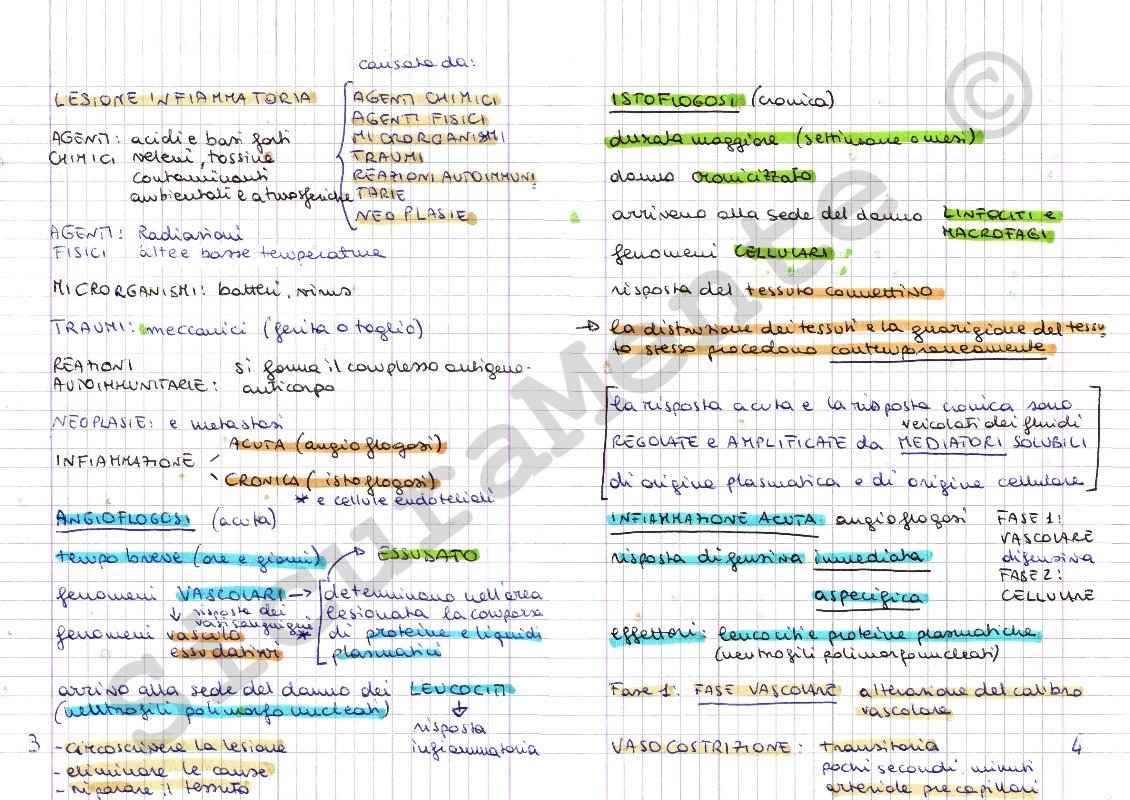 causata da:
LESIONE INFIAMMATORIA
AGENTI CHIMICI
AGENTI FISICI
MICRORGANISMI
TRAUMI
REAZIONI AUTOIMMUNI
TARIE
NEOPLASIE
AGENTI: acidi e basi forti
CHIMICI veleni, tossine
contaminanti
ambientali e atmosferiche
AGENTI: Radiazioni
FISICI alte e basse temperature
MICRORGANISMI: batteri, virus
TRAUMI: meccanici (ferita o taglio)
REAZIONI si forma il complesso antigene-
AUTOIMMUNITARIE: anticorpo
NEOPLASIE: e metastasi
INFIAMMAZIONE
ACUTA (angioflogosi)
CRONICA (istoflogosi)
* e cellule endoteliali
ANGIOFLOGOSI (acuta)
tempo breve (ore e giorni)
ESSUDATO
fenomeni VASCOLARI → determinano nell'area
↓ risposta dei lesionata la comparsa
vasi sanguigni
fenomeni vasculo * di proteine e liquidi
essudativi plasmatici
arrivo alla sede del danno dei LEUCOCITI
(neutrofili polimorfonucleati) ↓
risposta
infiammatoria
- circoscrivere la lesione
- eliminare le cause
- riparare il tessuto
3
ISTOFLOGOSI (cronica)
durata maggiore (settimane o mesi)
danno cronicizzato
arrivano alla sede del danno LINFOCITI e
MACROFAGI
fenomeni CELLULARI
risposta del tessuto connettivo
→ la distruzione dei tessuti e la guarigione del tessu
to stesso procedono contemporaneamente
la risposta acuta e la risposta cronica sono
veicolati dei fluidi
REGOLATE e AMPLIFICATE da MEDIATORI SOLUBILI
di origine plasmatica e di origine cellulare
INFIAMMAZIONE ACUTA angioflogosi FASE 1:
VASCOLARE
risposta difensiva immediata difensiva
FASE 2:
aspecifica CELLULARE
effettori: leucociti e proteine plasmatiche
(neutrofili polimorfonucleati)
Fase 1: FASE VASCOLARE alterazione del calibro
vascolare
VASOCOSTRIZIONE: transitoria
pochi secondi, minuti
arteriole precapillari
4
SicuraMente ©